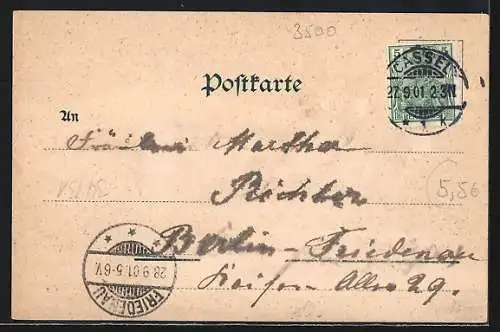 3500
5 5
CASSEL
27.9.01.2-3N
1 k
Postkarte
An
Fräulein Martha
Richter
5,56
Berlin-Friedenau
Kaiser Allee 29.
28.9.01.5-6V.
FRIEDENAU